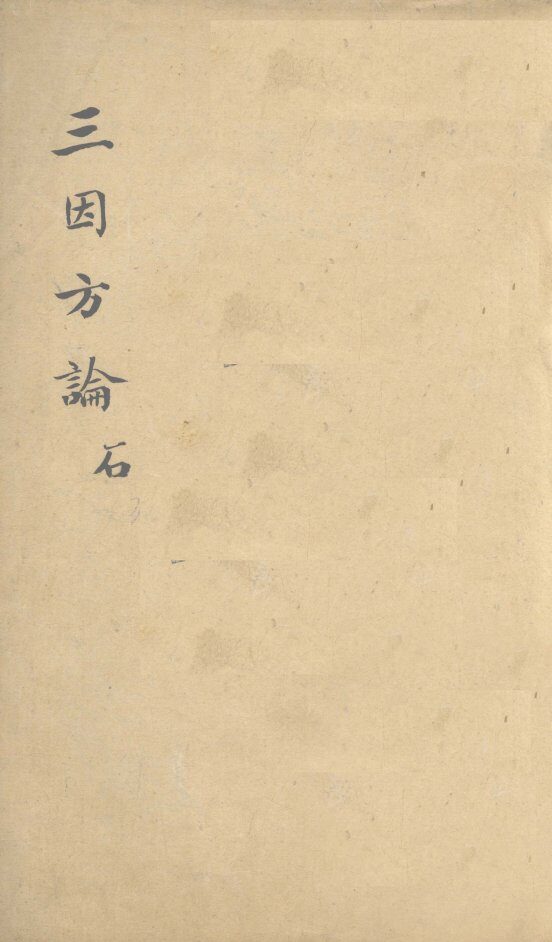 三因方論 石